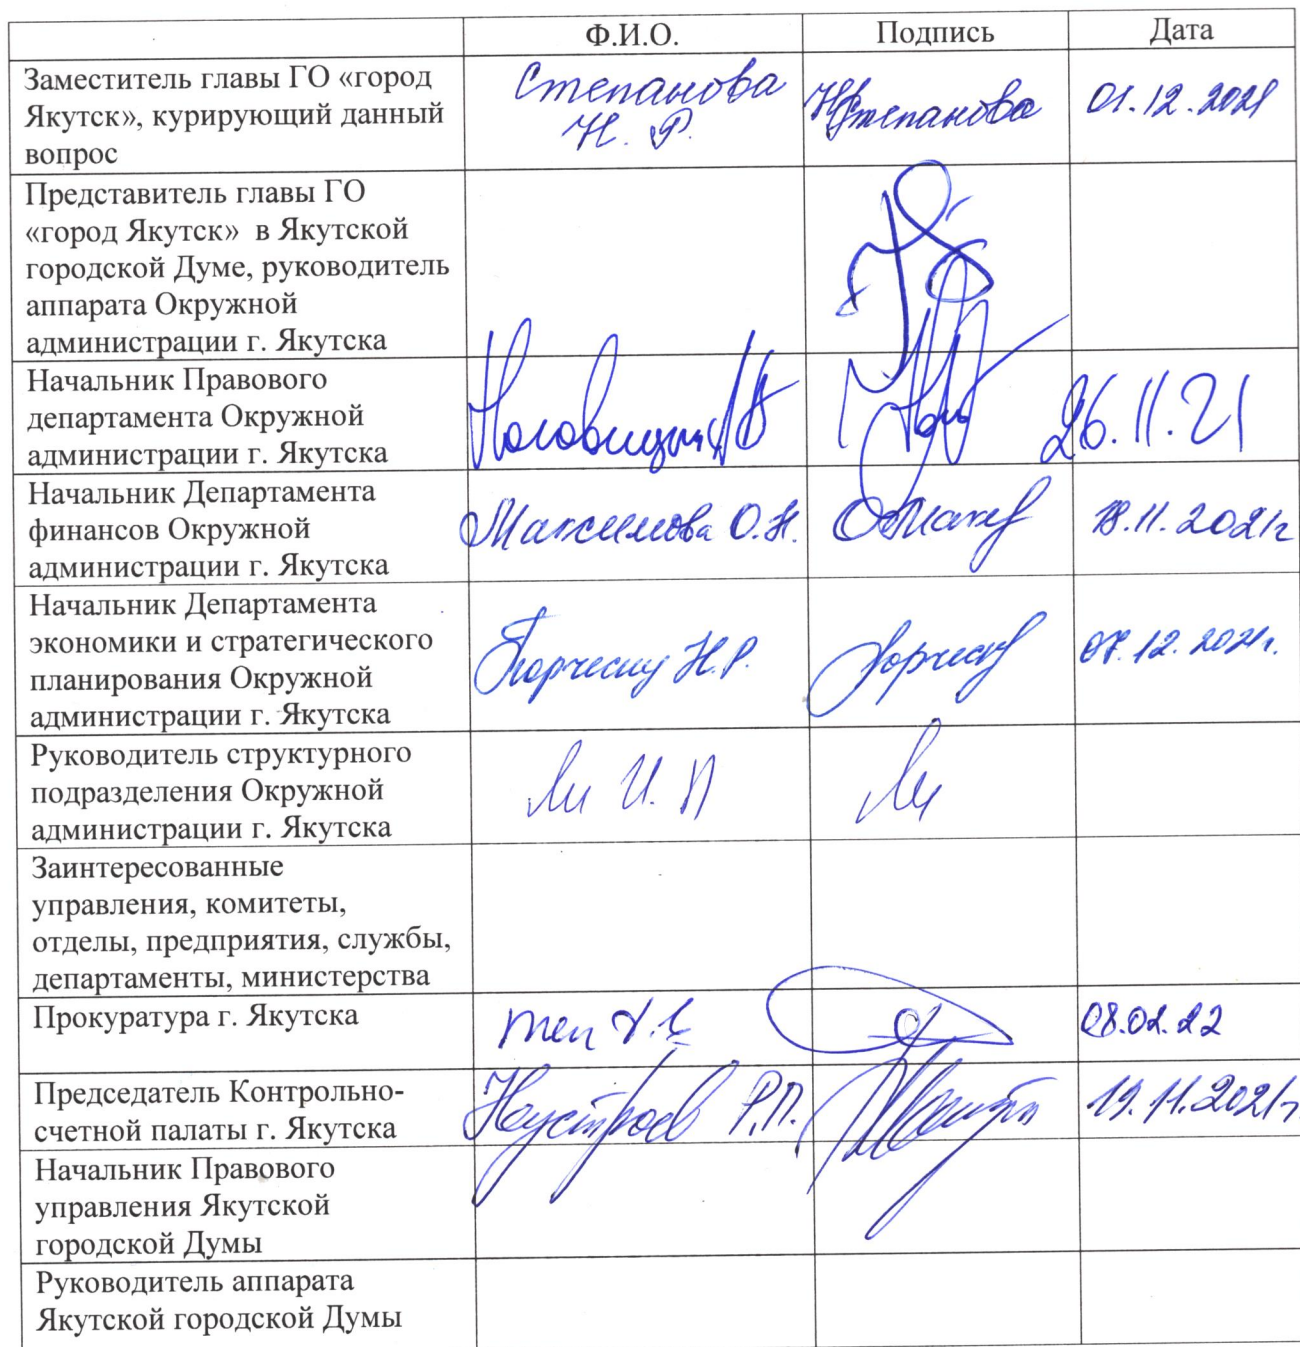 Ф.И.О. Подпись Дата
Заместитель главы ГО «город
Якутск», курирующий данный
вопрос
Степанова
Н. Р.
Степанова
01.12.2021
Представитель главы ГО
«город Якутск» в Якутской
городской Думе, руководитель
аппарата Окружной
администрации г. Якутска
Начальник Правового
департамента Окружной
администрации г. Якутска
26.11.21
Начальник Департамента
финансов Окружной
администрации г. Якутска
Максимова О.Н.
18.11.2021г
Начальник Департамента
экономики и стратегического
планирования Окружной
администрации г. Якутска
Н.Р.
07.12.2021г.
Руководитель структурного
подразделения Окружной
администрации г. Якутска
Ли И. П
Ли
Заинтересованные
управления, комитеты,
отделы, предприятия, службы,
департаменты, министерства
Прокуратура г. Якутска
08.02.22
Председатель Контрольно-
счетной палаты г. Якутска
Неустроев Р.П.
19.11.2021г.
Начальник Правового
управления Якутской
городской Думы
Руководитель аппарата
Якутской городской Думы